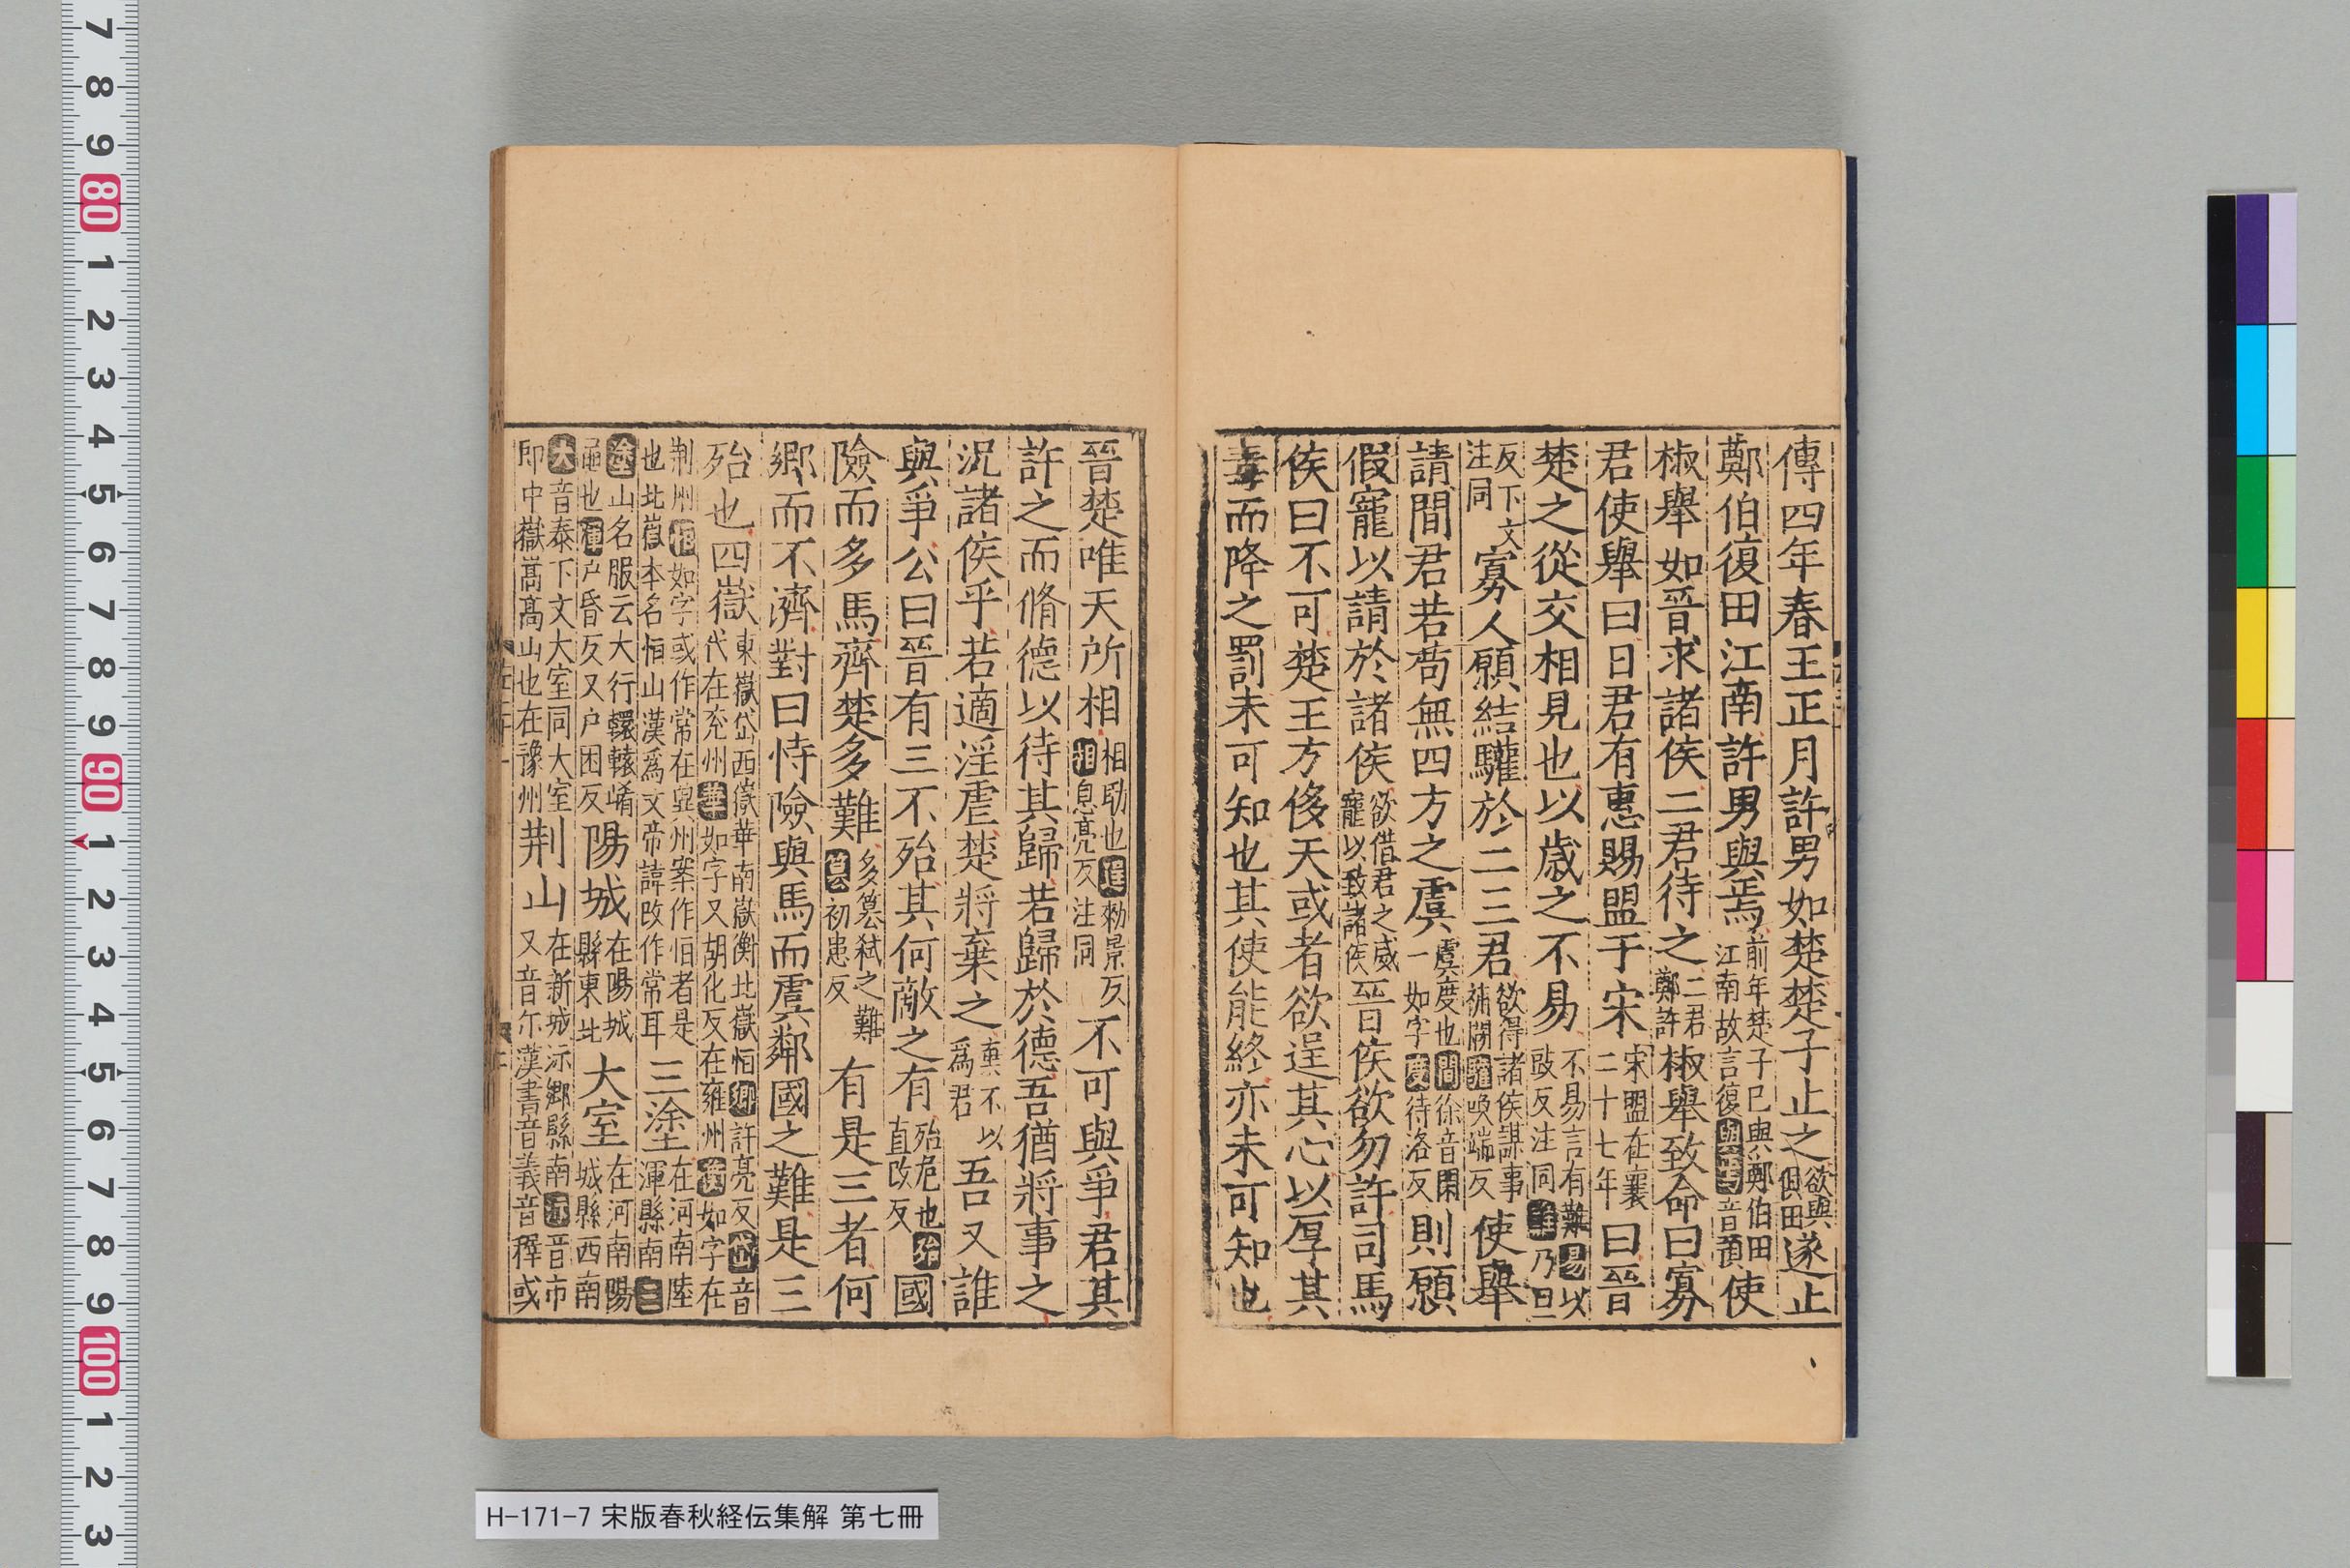 傳四年春王正月許男如楚楚子止之欲與俱田遂止
鄭伯復田江南許男與焉前年楚子已與鄭伯田江南故言復與焉音預使
椒舉如晉求諸侯二君待之二君鄭許椒舉致命曰寡
君使舉曰日君有惠賜盟于宋宋盟在襄二十七年曰晉
楚之從交相見也以歲之不易不易言有難易以豉反注同難乃旦
反下文注同寡人願結驩於二三君欲得諸侯謀事補闕驩喚端反使舉
請間君若苟無四方之虞虞度也間徐音閑一如字度待洛反則願
假寵以請於諸侯欲借君之威寵以致諸侯晉侯欲勿許司馬
侯曰不可楚王方侈天或者欲逞其心以厚其
毒而降之罰未可知也其使能終亦未可知也
晉楚唯天所相相助也逞勑景反相息亮反注同不可與爭君其
許之而脩德以待其歸若歸於德吾猶將事之
況諸侯乎若適淫虐楚將棄之棄不以爲君吾又誰
與爭公曰晉有三不殆其何敵之有殆危也殆直改反國
險而多馬齊楚多難多篡弒之難篡初患反有是三者何
鄉而不濟對曰恃險與馬而虞鄰國之難是三
殆也四嶽東嶽岱西嶽華南嶽衡北嶽恒鄉許亮反岱音代在兗州華如字又胡化反在雍州衡如字在
荆州恒如字或作常在冀州案作恒者是也北嶽本名恒山漢爲文帝諱改作常耳三塗在河南陸渾縣南三
塗山名服云大行轘轅崤黽也渾户昏反又户困反陽城在陽城縣東北大室在河南陽城縣西南
大音泰下文大室同大室即中嶽嵩高山也在豫州荆山在新城沶鄉縣南沶音市又音尓漢書音義音稺或
H-171-7 宋版春秋経伝集解 第七冊
7 8 9 80 1 2 3 4 5 6 7 8 9 90 1 2 3 4 5 6 7 8 9 100 1 2 3